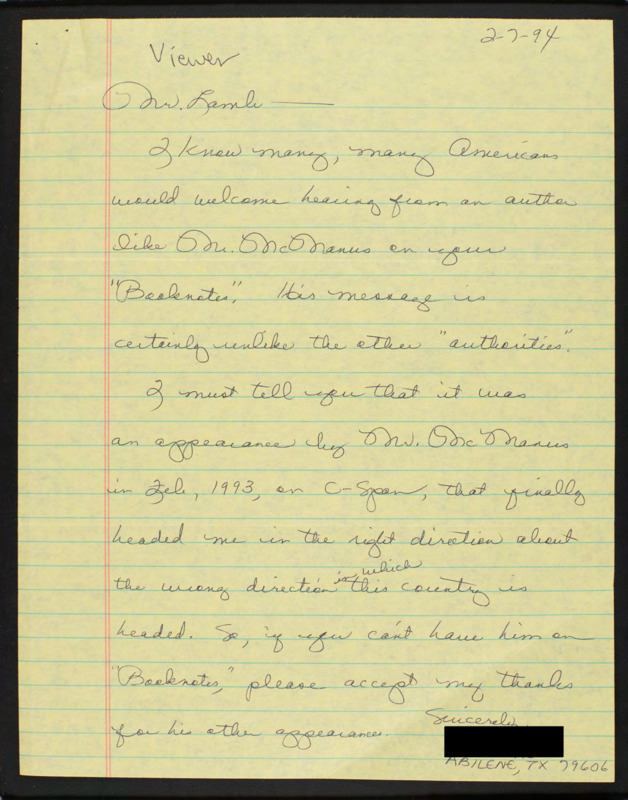 2-7-94
Viewer
Mr. Lamb —
I know many, many Americans
would welcome hearing from an author
like Mr. McManus on your
"Booknotes". His message is
certainly unlike the other "authorities".
I must tell you that it was
an appearance by Mr. McManus
in Feb, 1993, on C-Span, that finally
headed me in the right direction about
the wrong direction in which this country is
headed. So, if you can't have him on
"Booknotes," please accept my thanks
for his other appearance.
Sincerely,
ABILENE, TX 79606